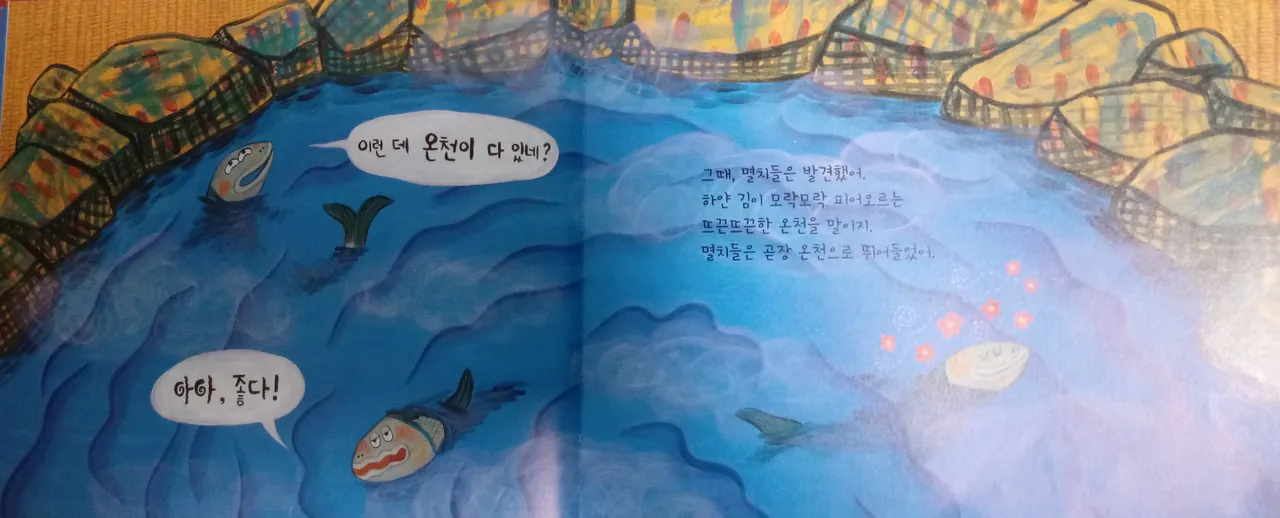 이런 데 온천이 다 있네?
그때, 멸치들은 발견했어.
하얀 김이 모락모락 피어오르는
뜨끈뜨끈한 온천을 말이지.
멸치들은 곧장 온천으로 뛰어들었어.
아아, 좋다!